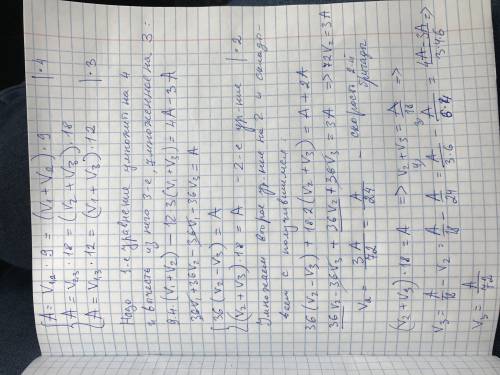 A = V₁,₂ · 9 = (V₁ + V₂) · 9 | · 4
A = V₂,₃ · 18 = (V₂ + V₃) · 18
A = V₁,₃ · 12 = (V₁ + V₃) · 12 | · 3
Надо 1-е уравнение умножить на 4
и вычесть из него 3-е, умноженное на 3:
9·4·(V₁+V₂) − 12·3(V₁+V₃) = 4A − 3A
36V₁+36V₂ − 36V₁ − 36V₃ = A
36(V₂ − V₃) = A
(V₂ + V₃) · 18 = A — 2-е ур-ние | · 2
Умножаем второе ур-ние на 2 и складываем
с получившимся:
36(V₂ − V₃) + 18·2(V₂ + V₃) = A + 2A
36V₂ − 36V₃ + 36V₂ + 36V₃ = 3A => 72V₂ = 3A
V₂ = 3A/72 = A/24 — скорость 2-й бригады
(V₂ + V₃) · 18 = A => V₂ + V₃ = A/18 =>
V₃ = A/18 − V₂ = A/18 − A/24 = A/3·6 − A/6·4 = 4A − 3A/3·4·6 =>
V₃ = A/72